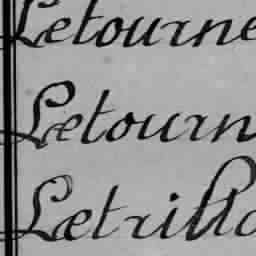 Letourne
Letourn
Letrillo